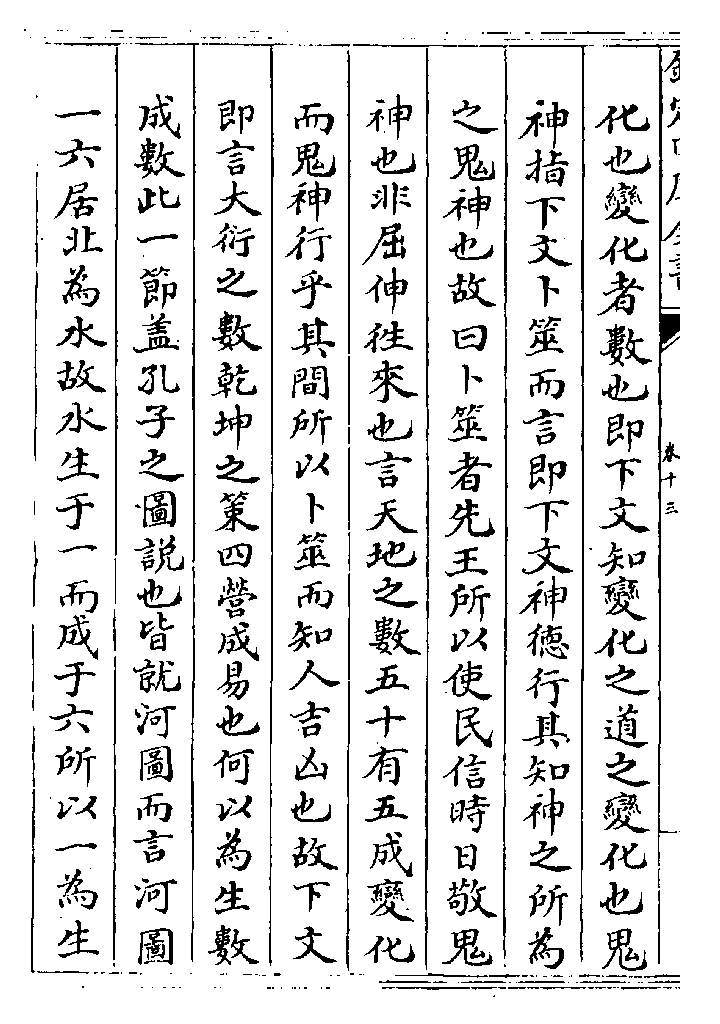 欽定四庫全書
卷十三
化也變化者數也即下文知變化之道之變化也鬼
神指下文卜筮而言即下文神德行其知神之所為
之鬼神也故曰卜筮者先王所以使民信時日敬鬼
神也非屈伸徃來也言天地之數五十有五成變化
而鬼神行乎其間所以卜筮而知人吉凶也故下文
即言大衍之數乾坤之策四營成易也何以為生數
成數此一節盖孔子之圖説也皆就河圖而言河圖
一六居北為水故水生于一而成于六所以一為生